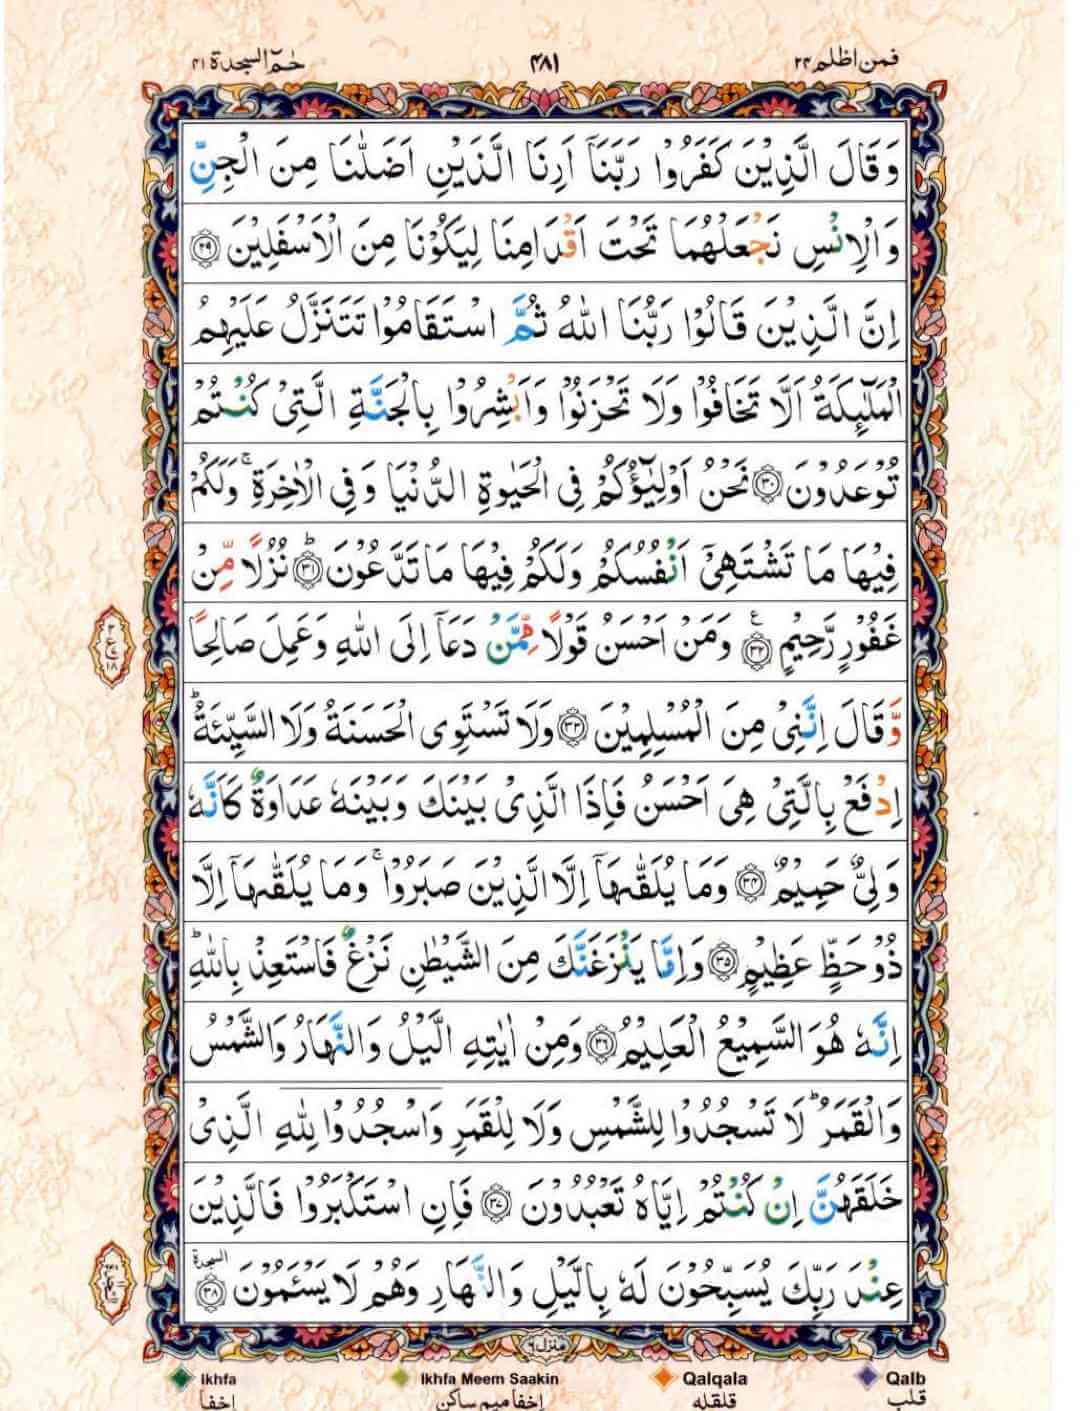 فمن اظلم ۲۴
۴۸۱
حٰمٓ السجدة ۴۱
وَقَالَ الَّذِيْنَ كَفَرُوْا رَبَّنَاۤ اَرِنَا الَّذَيْنِ اَضَلّٰنَا مِنَ الْجِنِّ
وَالْاِنْسِ نَجْعَلْهُمَا تَحْتَ اَقْدَامِنَا لِيَكُوْنَا مِنَ الْاَسْفَلِيْنَ ۲۹
اِنَّ الَّذِيْنَ قَالُوْا رَبُّنَا اللّٰهُ ثُمَّ اسْتَقَامُوْا تَتَنَزَّلُ عَلَيْهِمُ
الْمَلٰٓئِكَةُ اَلَّا تَخَافُوْا وَلَا تَحْزَنُوْا وَاَبْشِرُوْا بِالْجَنَّةِ الَّتِيْ كُنْتُمْ
تُوْعَدُوْنَ ۳۰ نَحْنُ اَوْلِيٰٓؤُكُمْ فِي الْحَيٰوةِ الدُّنْيَا وَفِي الْاٰخِرَةِ ۚ وَلَكُمْ
فِيْهَا مَا تَشْتَهِيْۤ اَنْفُسُكُمْ وَلَكُمْ فِيْهَا مَا تَدَّعُوْنَ ۳۱ؕ نُزُلًا مِّنْ
غَفُوْرٍ رَّحِيْمٍ ۳۲ۧ وَمَنْ اَحْسَنُ قَوْلًا مِّمَّنْ دَعَاۤ اِلَى اللّٰهِ وَعَمِلَ صَالِحًا
وَّقَالَ اِنَّنِيْ مِنَ الْمُسْلِمِيْنَ ۳۳ وَلَا تَسْتَوِي الْحَسَنَةُ وَلَا السَّيِّئَةُ ؕ
اِدْفَعْ بِالَّتِيْ هِيَ اَحْسَنُ فَاِذَا الَّذِيْ بَيْنَكَ وَبَيْنَهٗ عَدَاوَةٌ كَاَنَّهٗ
وَلِيٌّ حَمِيْمٌ ۳۴ وَمَا يُلَقّٰىهَاۤ اِلَّا الَّذِيْنَ صَبَرُوْا ۚ وَمَا يُلَقّٰىهَاۤ اِلَّا
ذُوْ حَظٍّ عَظِيْمٍ ۳۵ وَاِمَّا يَنْزَغَنَّكَ مِنَ الشَّيْطٰنِ نَزْغٌ فَاسْتَعِذْ بِاللّٰهِ ؕ
اِنَّهٗ هُوَ السَّمِيْعُ الْعَلِيْمُ ۳۶ وَمِنْ اٰيٰتِهِ الَّيْلُ وَالنَّهَارُ وَالشَّمْسُ
وَالْقَمَرُ ؕ لَا تَسْجُدُوْا لِلشَّمْسِ وَلَا لِلْقَمَرِ وَاسْجُدُوْا لِلّٰهِ الَّذِيْ
خَلَقَهُنَّ اِنْ كُنْتُمْ اِيَّاهُ تَعْبُدُوْنَ ۳۷ فَاِنِ اسْتَكْبَرُوْا فَالَّذِيْنَ
عِنْدَ رَبِّكَ يُسَبِّحُوْنَ لَهٗ بِالَّيْلِ وَالنَّهَارِ وَهُمْ لَا يَسْـَٔمُوْنَ ۳۸ السجدة
منزل ۶
Ikhfa Ikhfa Meem Saakin Qalqala Qalb
إخفا إخفا ميم ساكن قلقله قلب